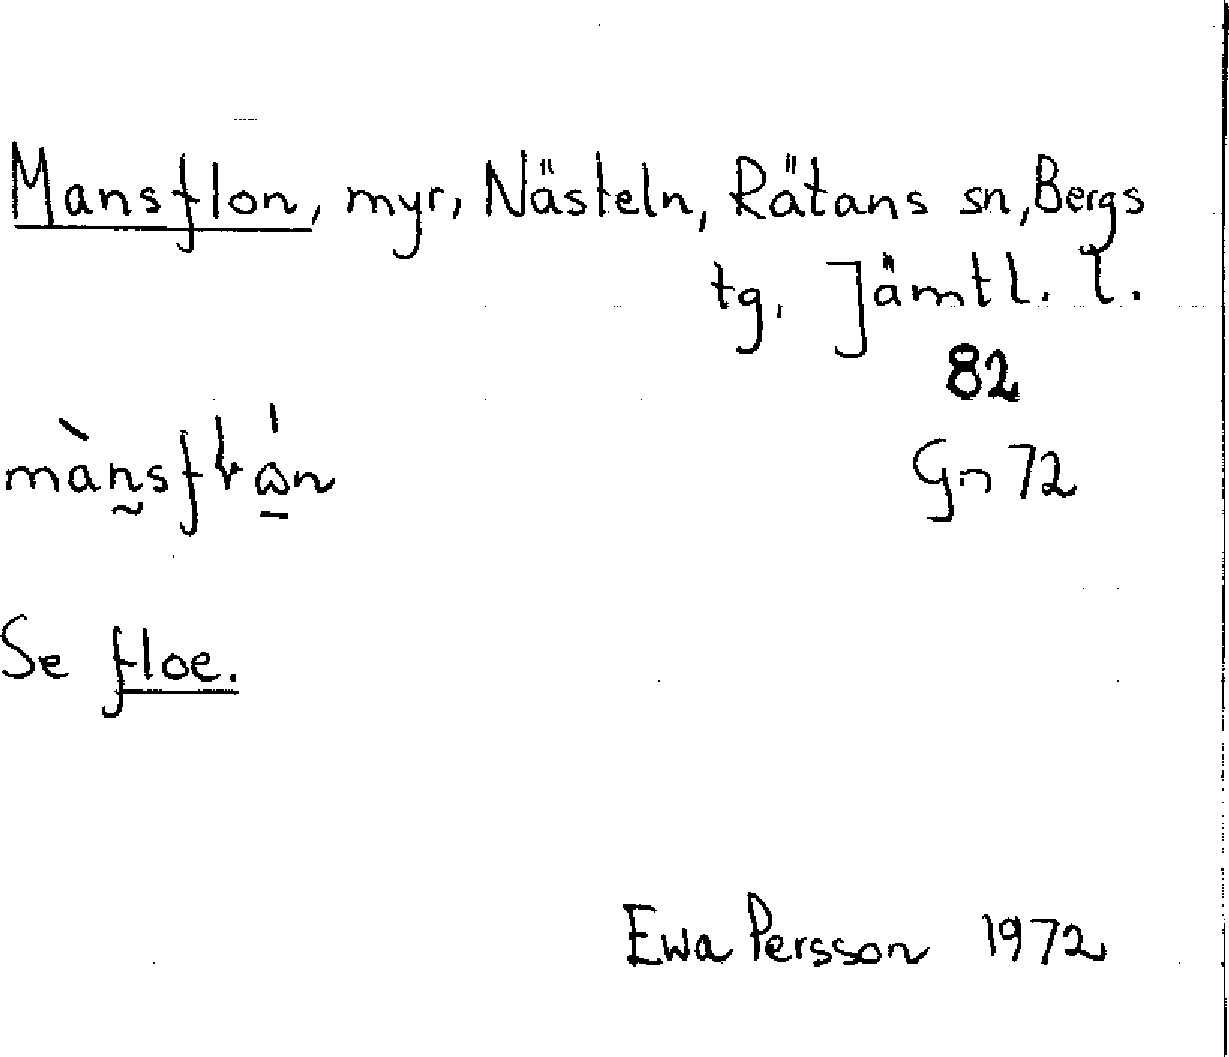 Mansflon, myr, Nästeln, Rätans sn, Bergs
tg, Jämtl. l.
82
Gn 72
Se floe.
Ewa Persson 1972